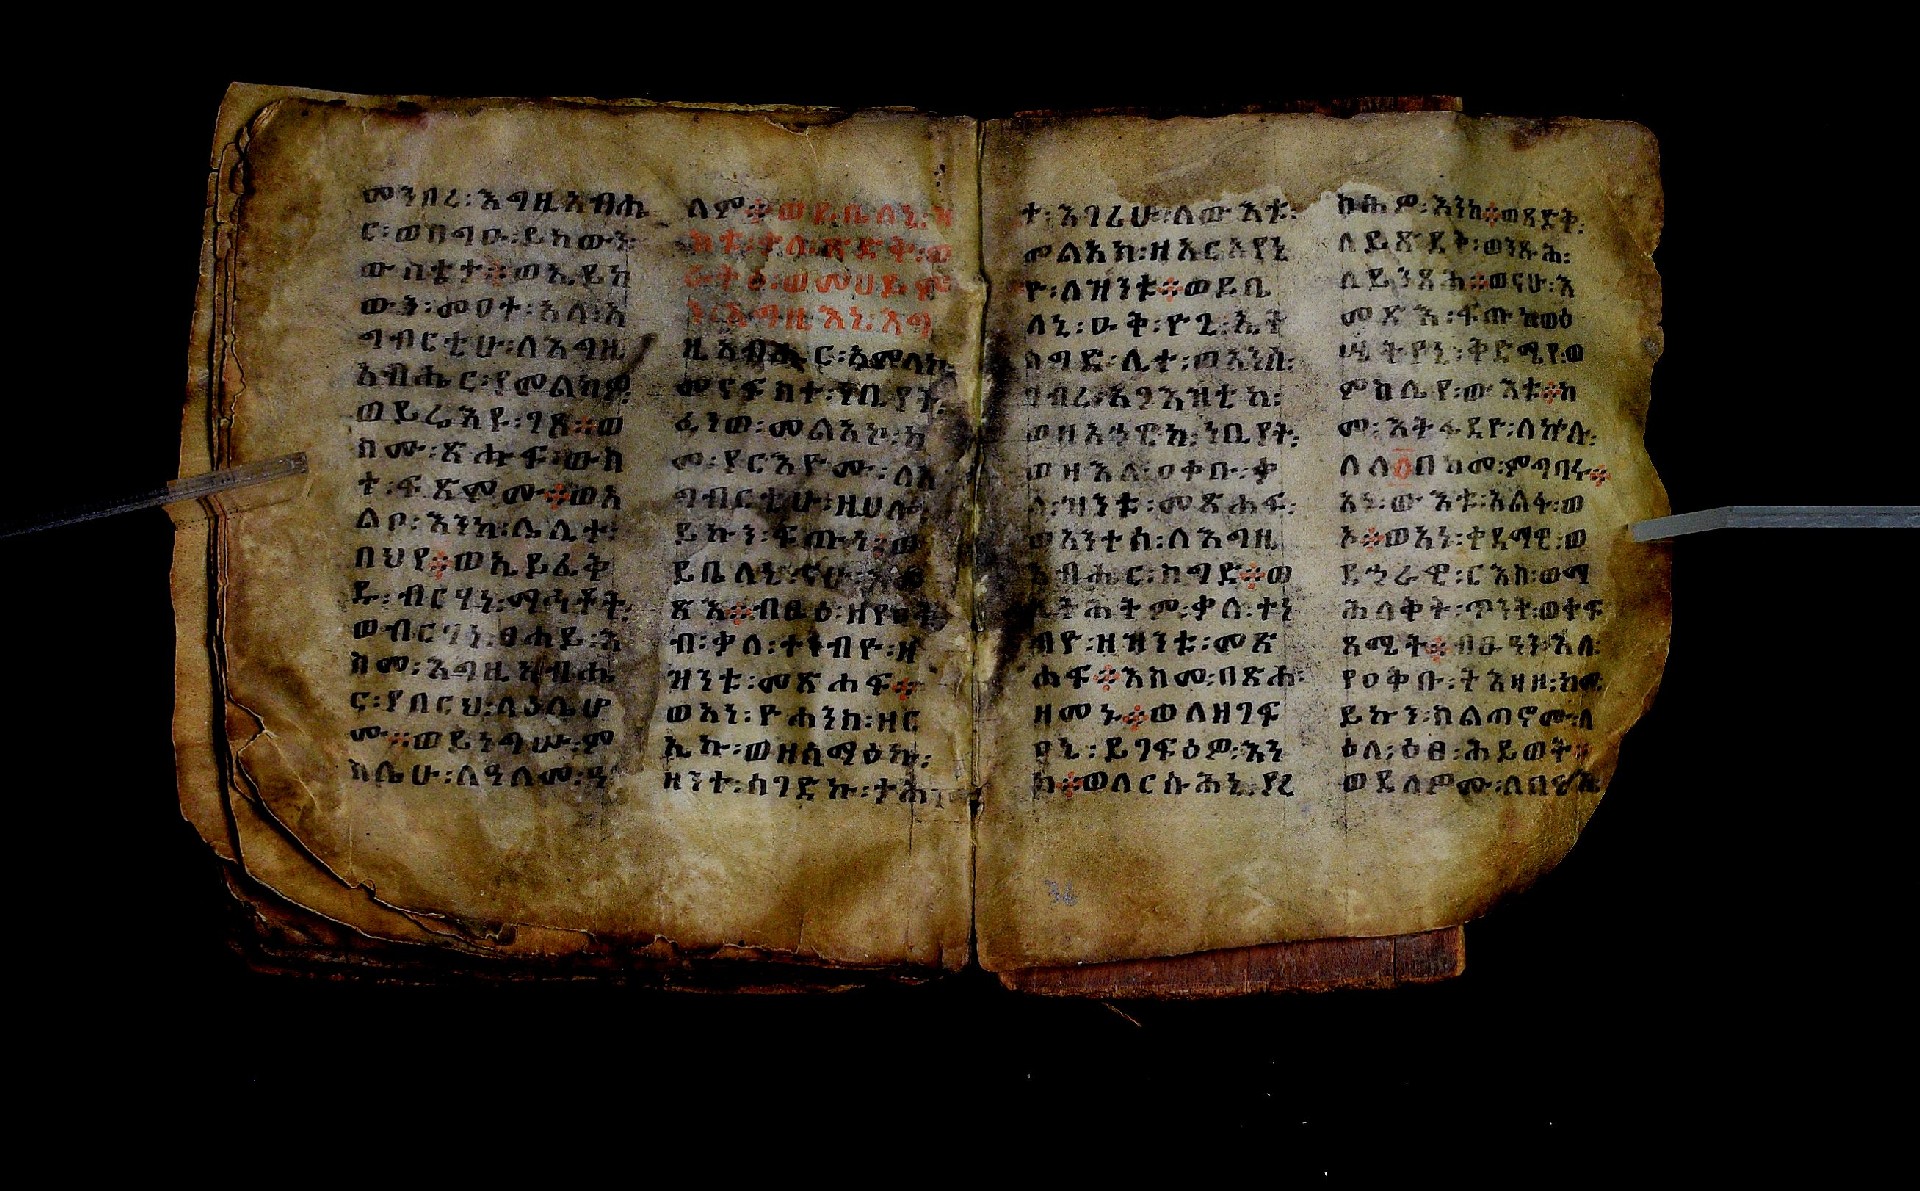 መንበረ፡እግዚአብሔ
ር፡ወበግዑ፡ይከውን፡
ውስቴታ፡፡ወኢይከ
ውን፡መዐተ፡አላ፡አ
ግብርቲሁ፡ለእግዚ
አብሔር፡የመልክዎ፡
ወይሬእዩ፡ገጾ፡፡ወ
ስሙ፡ጽሑፍ፡ውስ
ተ፡ፍጽሞሙ፡፡ወአ
ልቦ፡እንከ፡ሌሊተ፡
በህየ፡፡ወኢይፈቅ
ዱ፡ብርሃነ፡ማኅቶት፡
ወብርሃነ፡ፀሐይ፡እ
ስመ፡እግዚአብሔ
ር፡ያበርህ፡ላዕሌሆ
ሙ፡፡ወይነግሡ፡ም
ስሌሁ፡ለዓለመ፡ዓ
ለም፡፡ወይቤለኒ፡ዝ
ንቱ፡ቃል፡ጽድቅ፡ወ
እግዚእነ፡እግ
ዚአብሔር፡አምላከ፡
መናፍስተ፡ነቢያት፡
ፈነወ፡መልአኮ፡ከ
መ፡ያርእዮሙ፡ለአ
ግብርቲሁ፡ዘሀለ
ይኩን፡ፍጡነ፡፡ወ
ይቤለኒ፡ናሁ፡
ጽእ፡፡ብፁዕ፡ዘየዐቅ
ብ፡ቃለ፡ተነብዮ፡ዘ
ዝንቱ፡መጽሐፍ፡፡
ወአነ፡ዮሐንስ፡ዘር
ኢኩ፡ወዘሰማዕኩ፡
ዘንተ፡ሰገድኩ፡ታሕ
ተ፡እገሪሁ፡ለውእቱ፡
መልአክ፡ዘአርአየኒ
ዮ፡ለዝንቱ፡፡ወይቤ
ለኒ፡ዑቅ፡ዮጊ፡ኢት
ስግድ፡ሊተ፡ወአንሰ፡
ገብረ፡እግእዝቲከ፡
ወዘአኃዊከ፡ነቢያት፡
ወዘእለ፡ዐቀቡ፡ቃ
ለ፡ዝንቱ፡መጽሐፍ፡
ወአንተሰ፡ለእግዚ
አብሔር፡ስግድ፡፡ወ
ኢትሕትም፡ቃለ፡ተነ
ብዮ፡ዘዝንቱ፡መጽ
ሐፍ፡፡እስመ፡በጽሐ፡
ዘመኑ፡፡ወለዘገፍ
ዐኒ፡ይገፍዕዎ፡እን
ከ፡፡ወለርሱሕኒ፡ያረ
ኩሕዎ፡እንከ፡፡ወጻድቅ፡
ለይጽደቅ፡ወንጹሕ፡
ለይንጻሕ፡፡ወናሁ፡እ
መጽእ፡ፍጡነ፡ወዕ
ሤትየኒ፡ቅድሜየ፡ወ
ምስሌየ፡ውእቱ፡፡ከ
መ፡እትፋደዮ፡ለኵሉ፡
ለለ፩በከመ፡ምግባሩ፡፡
አነ፡ውእቱ፡አልፋ፡ወ
ኦ፡፡ወአነ፡ቀዳማዊ፡ወ
ደኃራዊ፡ርእስ፡ወማ
ሕለቅት፡ጥንት፡ወተፍ
ጻሜት፡፡ብፁዓን፡እለ፡
የዐቅቡ፡ትእዛዘ፡ከመ
ይኩን፡ስልጣኖሙ፡ላ
ዕለ፡ዕፀ፡ሕይወት፡
ወደለምሙ፡ለበዊእ